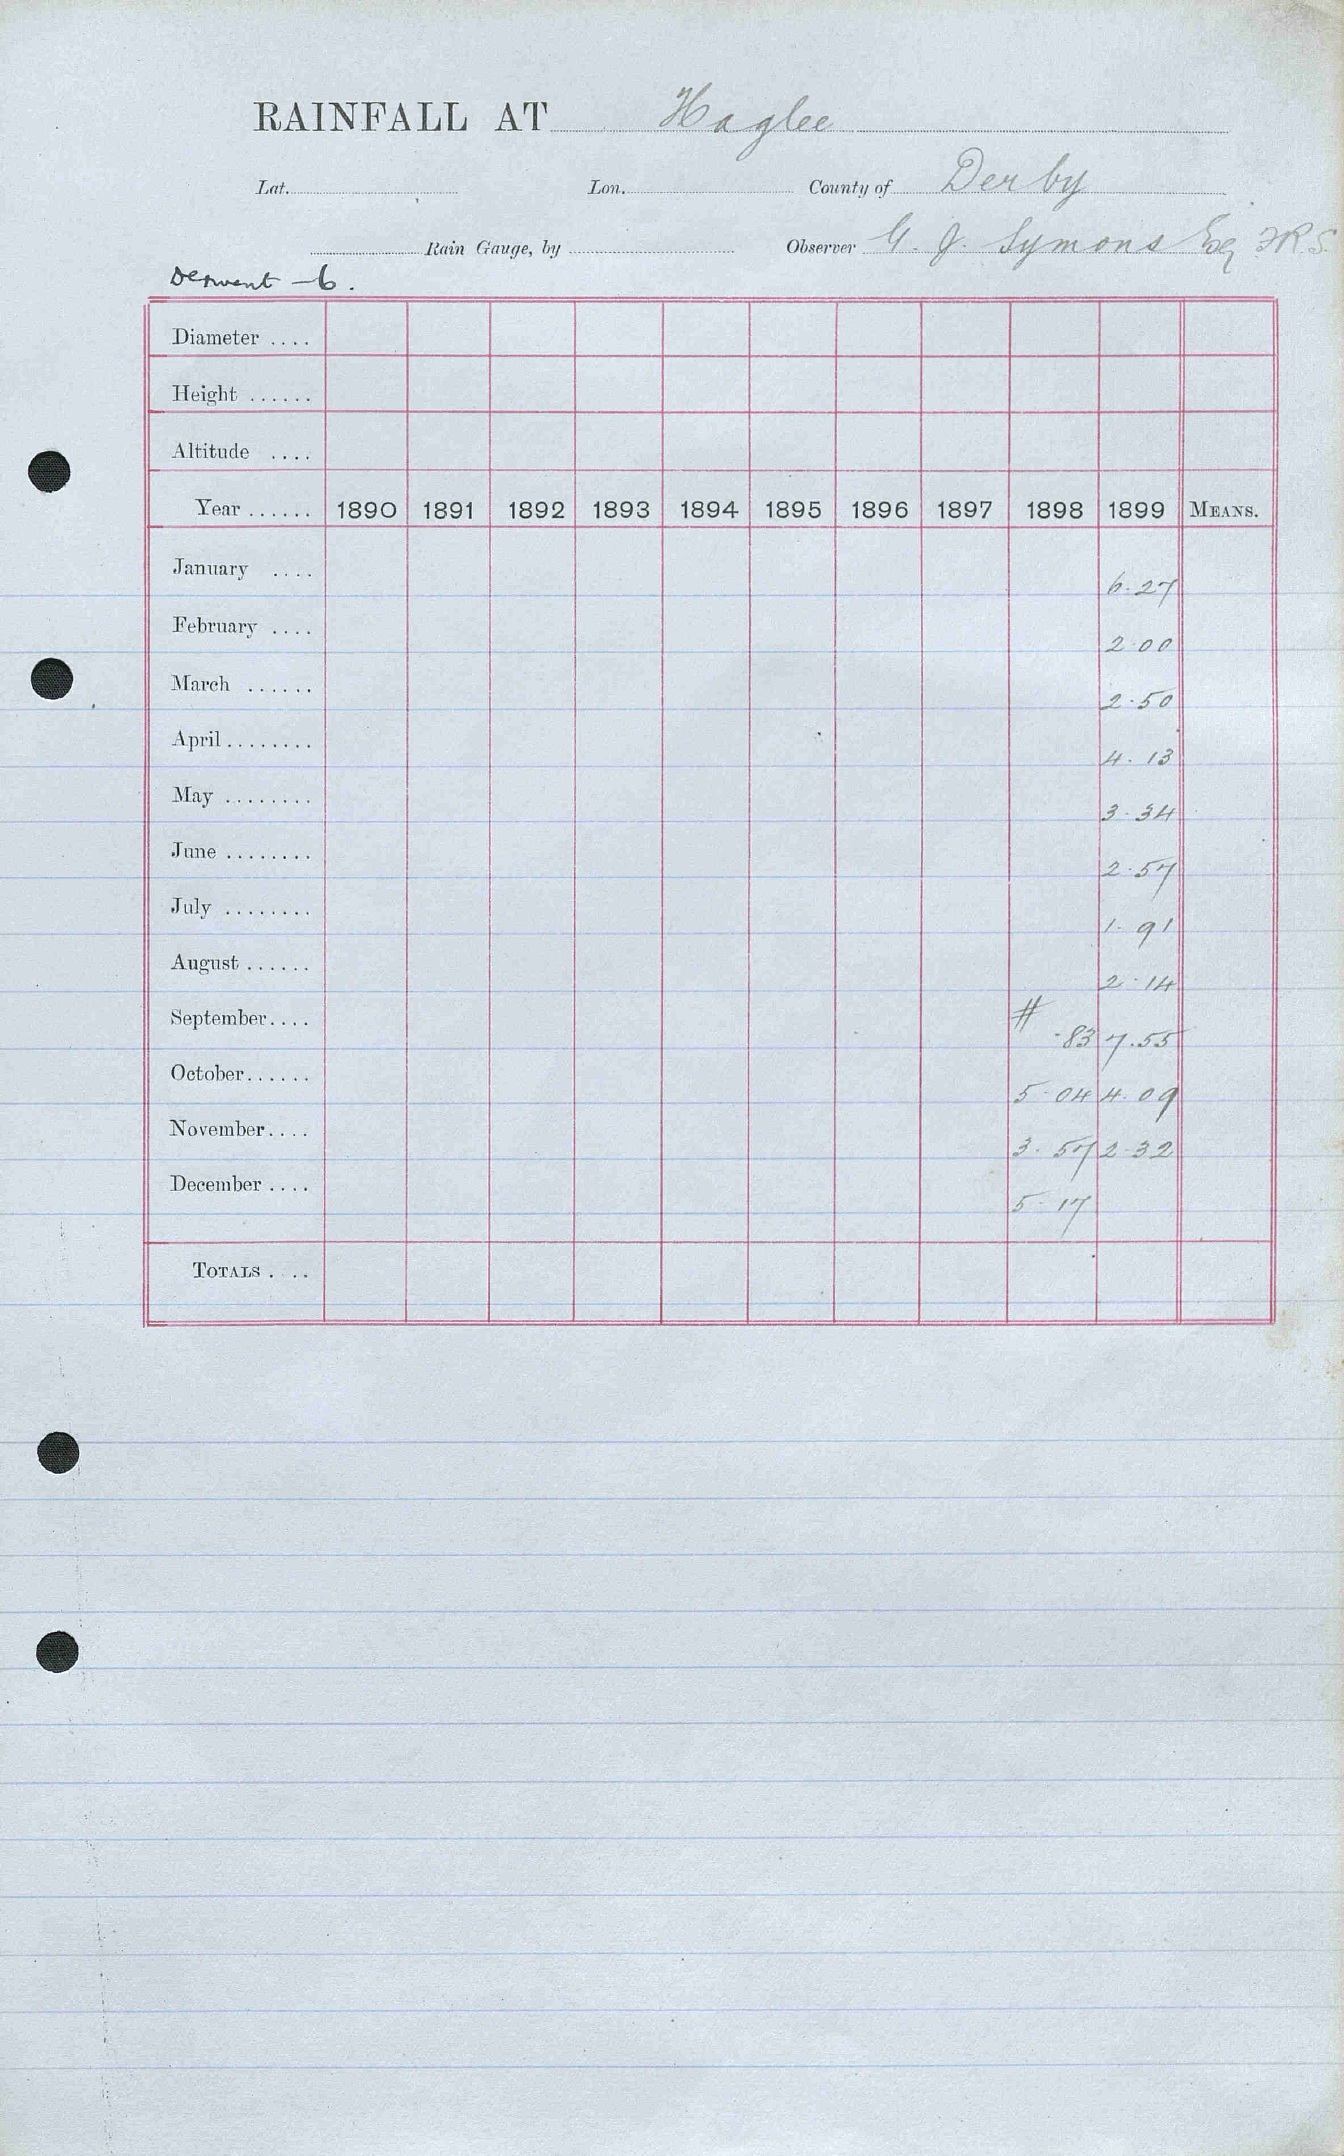 RAINFALL AT Haglee
Lat. Lon. County of Derby
Rain Gauge, by Observer G. J. Symons Esq FRS.
Derwent - 6.
Diameter ....
Height ......
Altitude ....
Year ...... 1890 1891 1892 1893 1894 1895 1896 1897 1898 1899 MEANS.
January .... 6.27
February .... 2.00
March ...... 2.50
April ........ 4.13
May ........ 3.34
June ........ 2.57
July ........ 1.91
August ...... 2.14
September.... # .83 7.55
October...... 5.04 4.09
November.... 3.57 2.32
December .... 5.17
TOTALS . ..